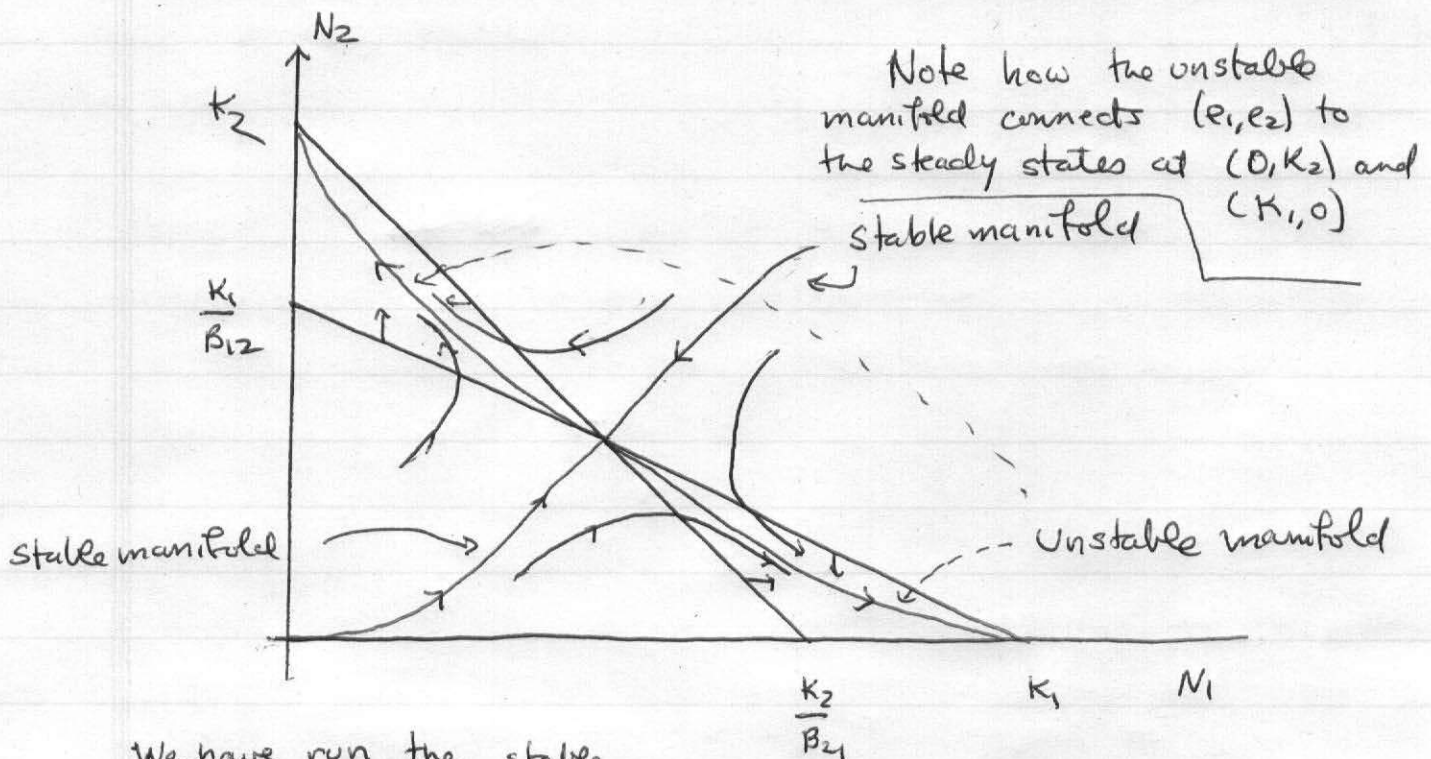 N2
K2
Note how the unstable
manifold connects (e1,e2) to
the steady states at (0,K2) and
(K1,0)
stable manifold
K1
B12
stable manifold
unstable manifold
K2
B21
K1
N1
We have run the stable